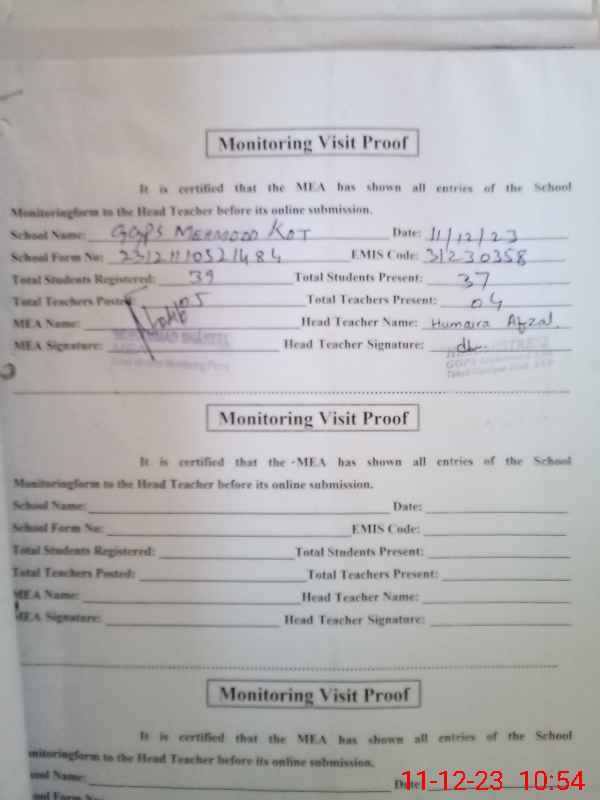 Monitoring Visit Proof
It is certified that the MEA has shown all entries of the School
Monitoringform to the Head Teacher before its online submission.
School Name: GGPS MEHMOOD KOT Date: 11/12/23
School Form No: EMIS Code: 31230358
Total Students Registered: 39 Total Students Present: 37
Total Teachers Posted: 05 Total Teachers Present: 04
MEA Name: Head Teacher Name: Humaira Afzal.
MEA Signature: Head Teacher Signature:
Monitoring Visit Proof
It is certified that the -MEA has shown all entries of the School
Monitoringform to the Head Teacher before its online submission.
School Name: Date:
School Form No: EMIS Code:
Total Students Registered: Total Students Present:
Total Teachers Posted: Total Teachers Present:
MEA Name: Head Teacher Name:
MEA Signature: Head Teacher Signature:
Monitoring Visit Proof
It is certified that the MEA has shown all entries of the School
onitoringform to the Head Teacher before its online submission.
ool Name: Date
ool Form No:
11-12-23 10:54